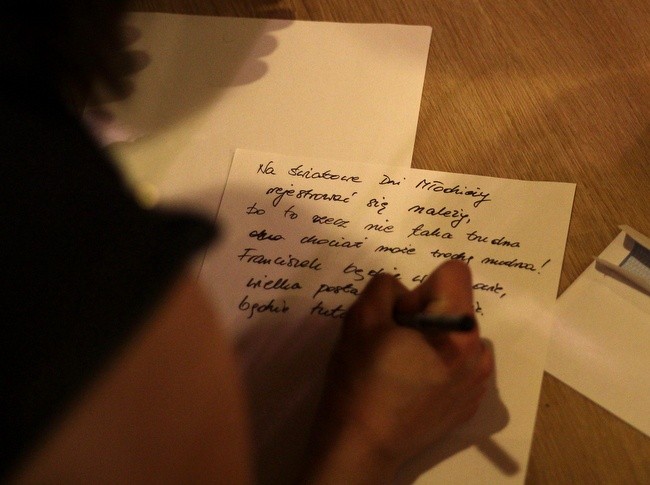 Na Światowe Dni Młodzieży
rejestrować się należy,
bo to rzecz nie taka trudna
chociaż może trochę nudna!
Franciszek będzie
wielka
będzie